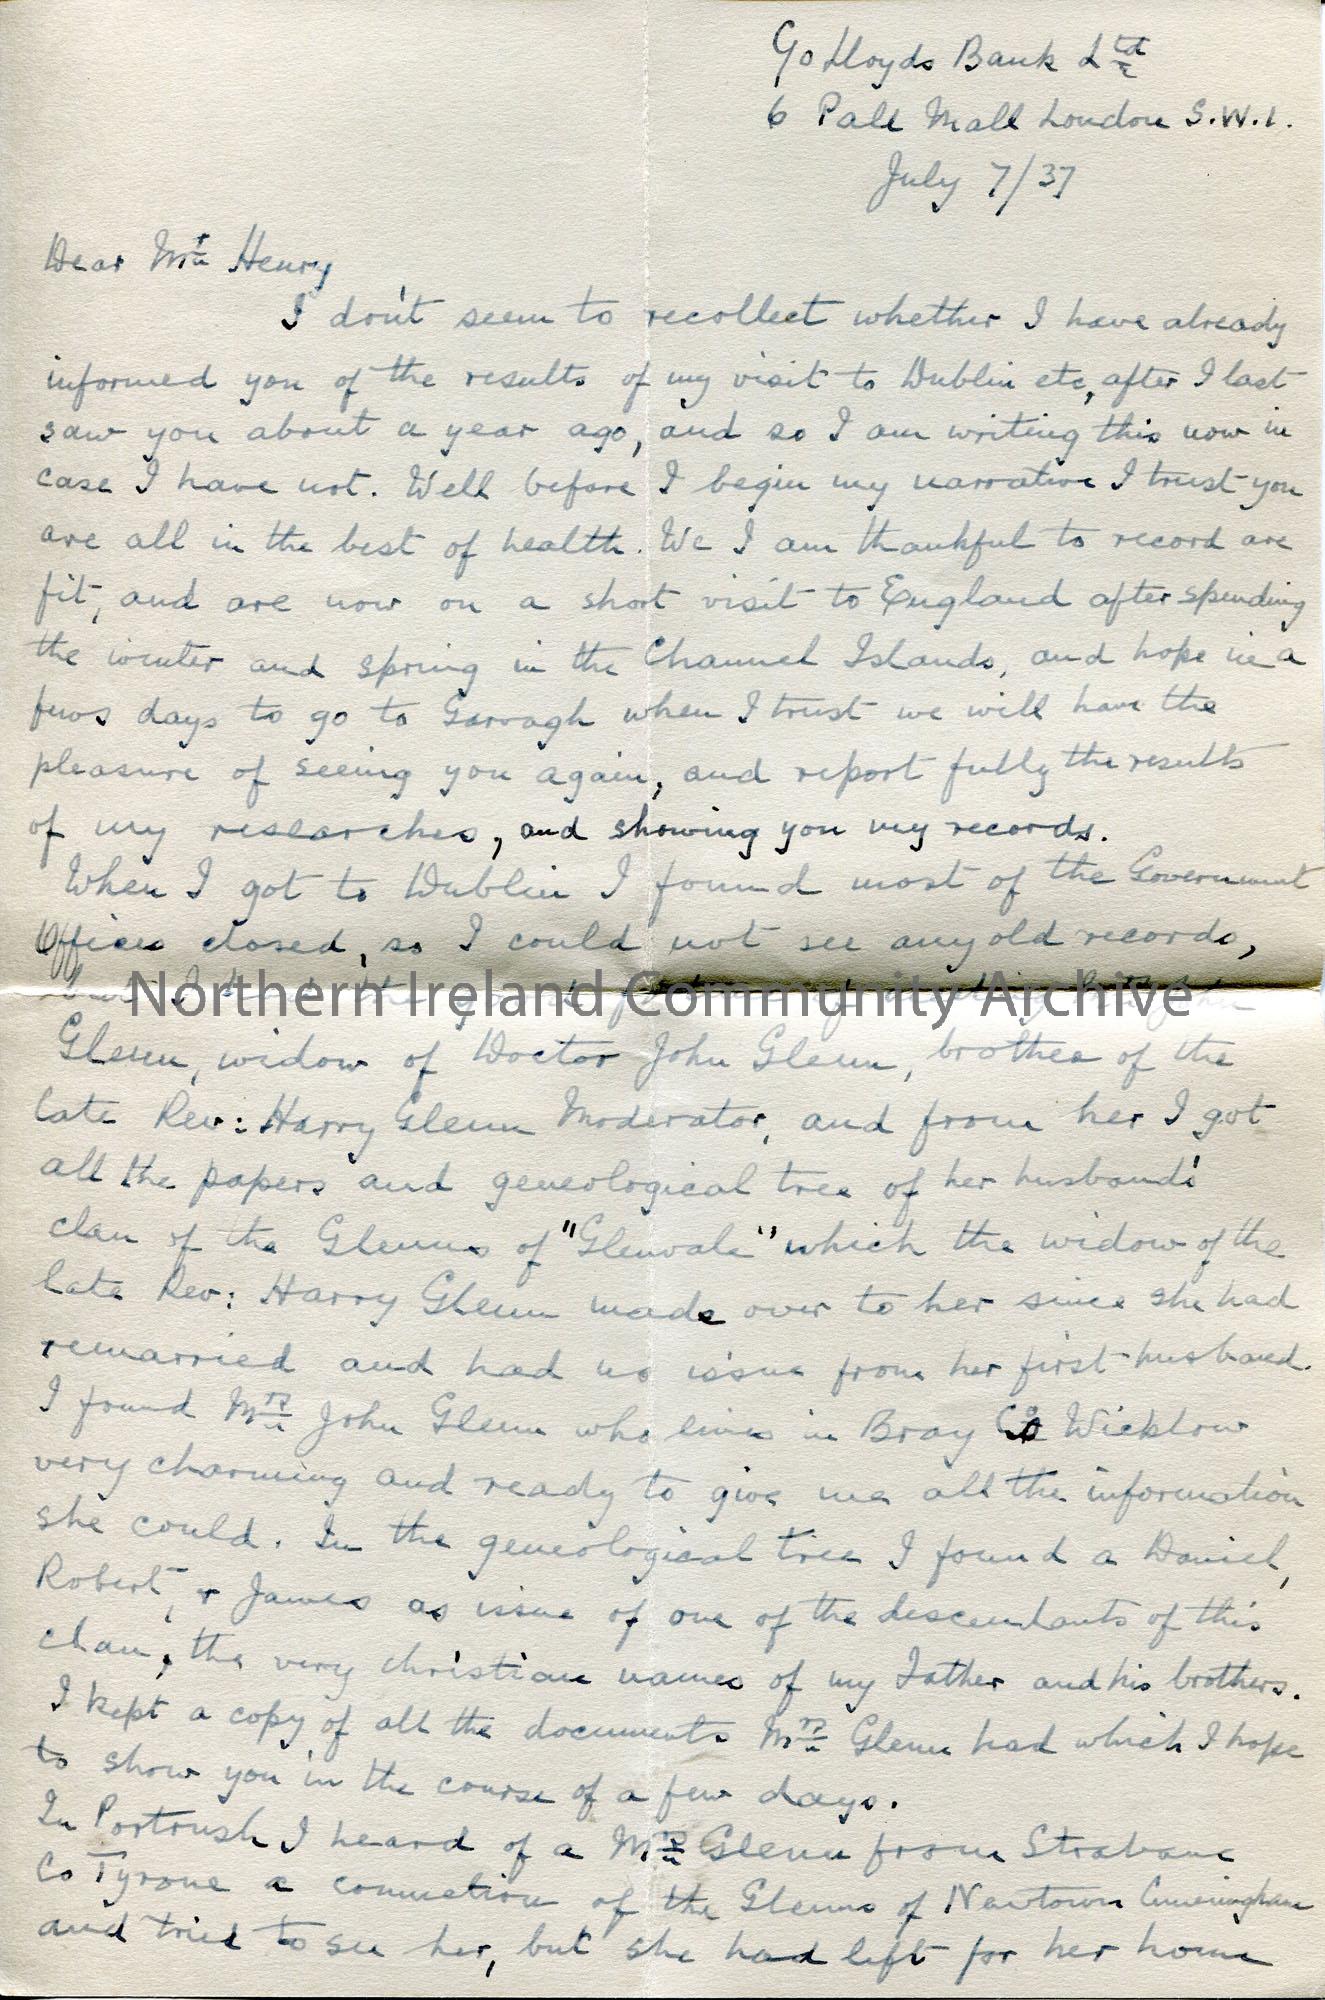 C/o Lloyds Bank Ltd
6 Pall Mall London S.W.1.
July 7/37
Dear Mr Henry
I don't seem to recollect whether I have already
informed you of the results of my visit to Dublin etc, after I last
saw you about a year ago, and so I am writing this now in
case I have not. Well before I begin my narrative I trust you
are all in the best of health. We I am thankful to record are
fit, and are now on a short visit to England after spending
the winter and spring in the Channel Islands, and hope in a
few days to go to Garvagh when I trust we will have the
pleasure of seeing you again, and report fully the results
of my researches, and showing you my records.
When I got to Dublin I found most of the Government
Offices closed, so I could not see any old records,
Northern Ireland Community Archive
Glenn, widow of Doctor John Glenn, brother of the
late Rev: Harry Glenn Moderator, and from her I got
all the papers and geneological tree of her husband's
clan of the Glenns of "Glenvale" which the widow of the
late Rev: Harry Glenn made over to her since she had
remarried and had no issue from her first husband.
I found Mrs John Glenn who lives in Bray Co Wicklow
very charming and ready to give me all the information
she could. In the geneological tree I found a Daniel,
Robert, & James as issue of one of the descendants of this
clan, the very christian names of my Father and his brothers.
I kept a copy of all the documents Mrs Glenn had which I hope
to show you in the course of a few days.
In Portrush I heard of a Mrs Glenn from Strabane
Co Tyrone a connection of the Glenns of Newtown Cunningham
and tried to see her, but she had left for her home